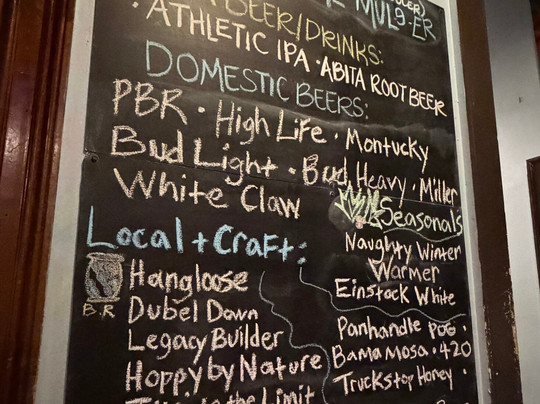 MULE-ER
BEER/DRINKS:
· ATHLETIC IPA · ABITA ROOT BEER
DOMESTIC BEERS:
PBR · High Life · Montucky
Bud Light · Bud Heavy · Miller
White Claw
Seasonals
Naughty Winter
Warmer
Einstock White
Local + Craft:
B.R
Hangloose
Dubel Down
Legacy Builder
Hoppy by Nature
the Limit
Panhandle POG ·
Bama Mosa · 420
Truckstop Honey ·